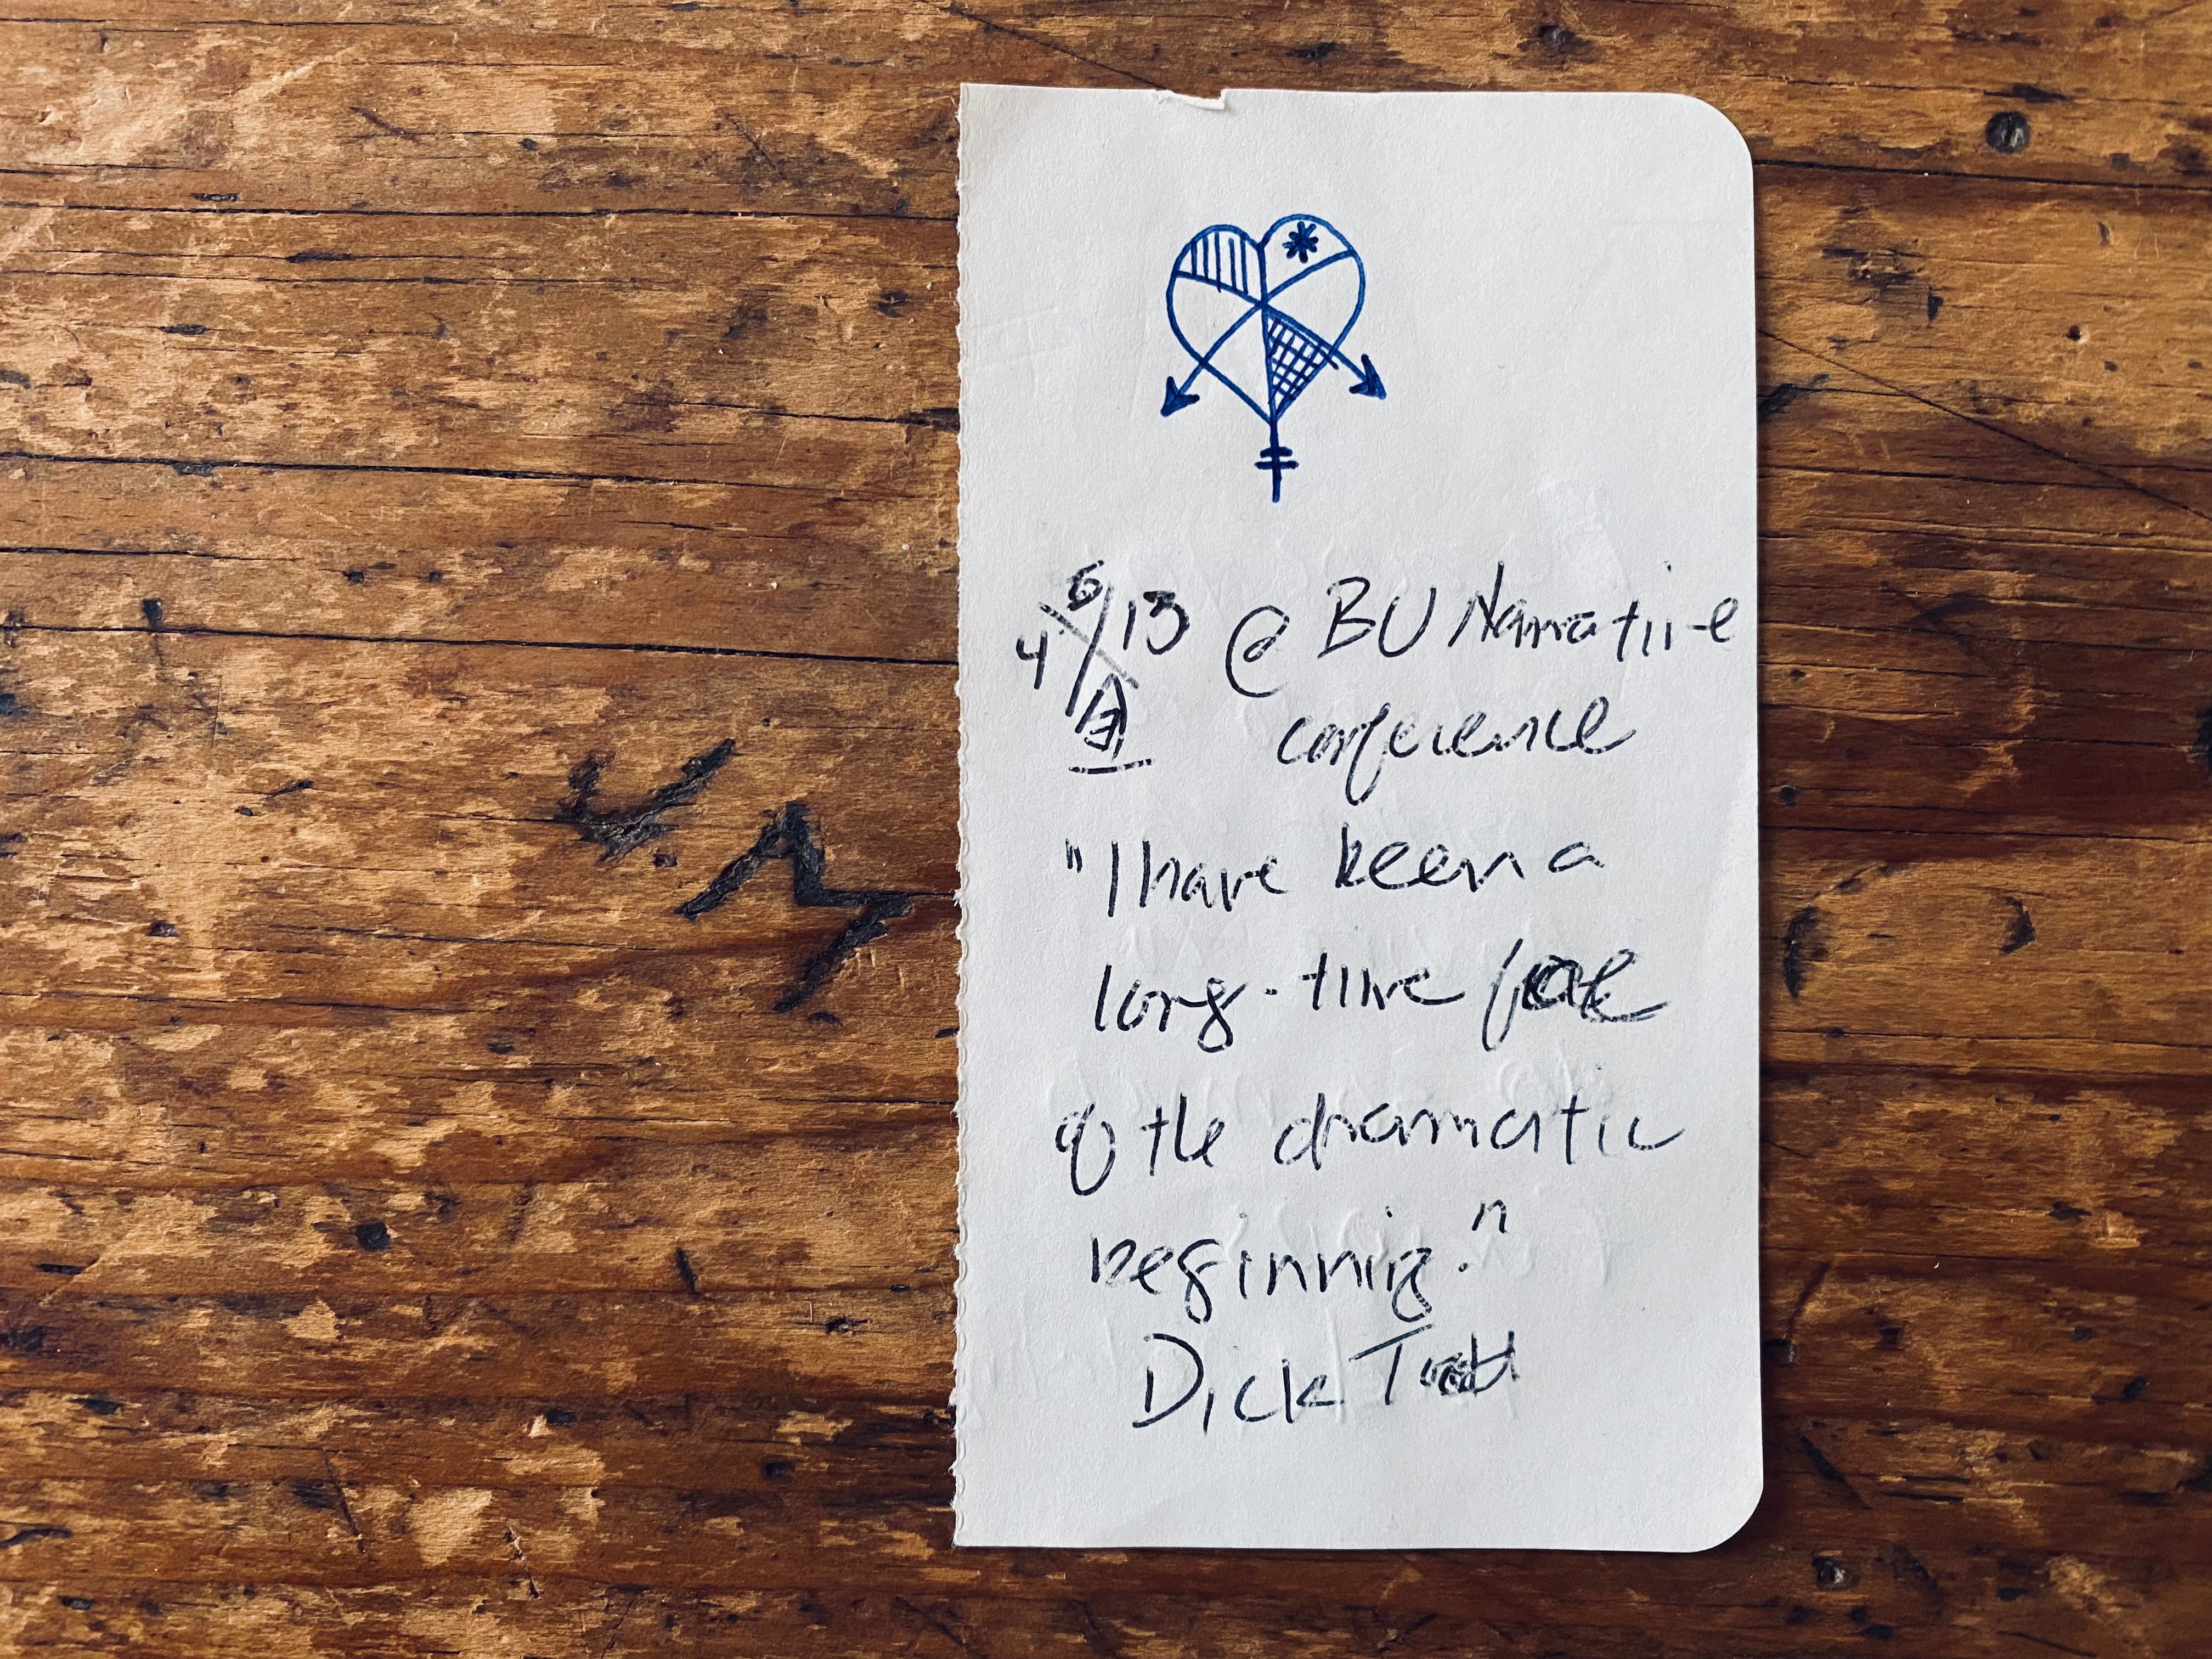 4 6/13 @ BU Narrative
conference
"I have been a
long-time foe
of the dramatic
beginning."
Dick Todd